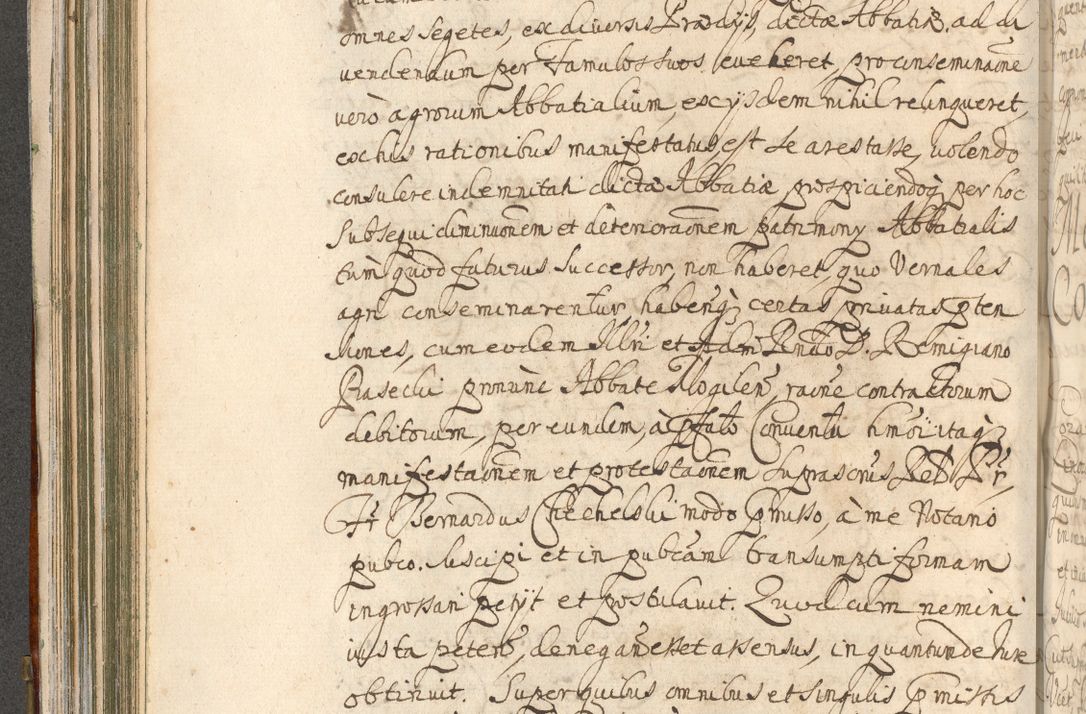 omnes segetes, ex diversis Prædijs, dictæ Abbatiæ, ad di
vendendum per Famulos suos eveheret, pro inseminaõne
verò agrorum Abbatialium, ex ijsdem nihil relinqueret,
ex his rationibus manifestatus est se arestasse, volendo
consulere indemnitati dictæ Abbatiæ prospiciendoq̃ per hoc
subsequi diminuõnem et deterioraõnem patrimony Abbatialis
cum quod futurus Successor, non haberet, quo Vernales
agri conseminarentur, habensq̃ certas privatas prten
siones, cum eodem Illri et Adm Rndo D. Remigiano
Raseclii pronunc Abbate Mogilen, raõne contractorum
debitorum, per eundem, à Pfato Conventu hmõi itaq̃
manifestaõnem et protestaõnem suprascris Rel Pr
Fr Bernardus modo pmisso, à me Notario
pubco. suscipi et in pubcam transumpti formam
ingrossari petijt et postulavit. Quod cum nemini
iusta petenti, denegan esset assensus, in quantum de Iure
obtinuit. Super quibus omnibus et singulis pmissis